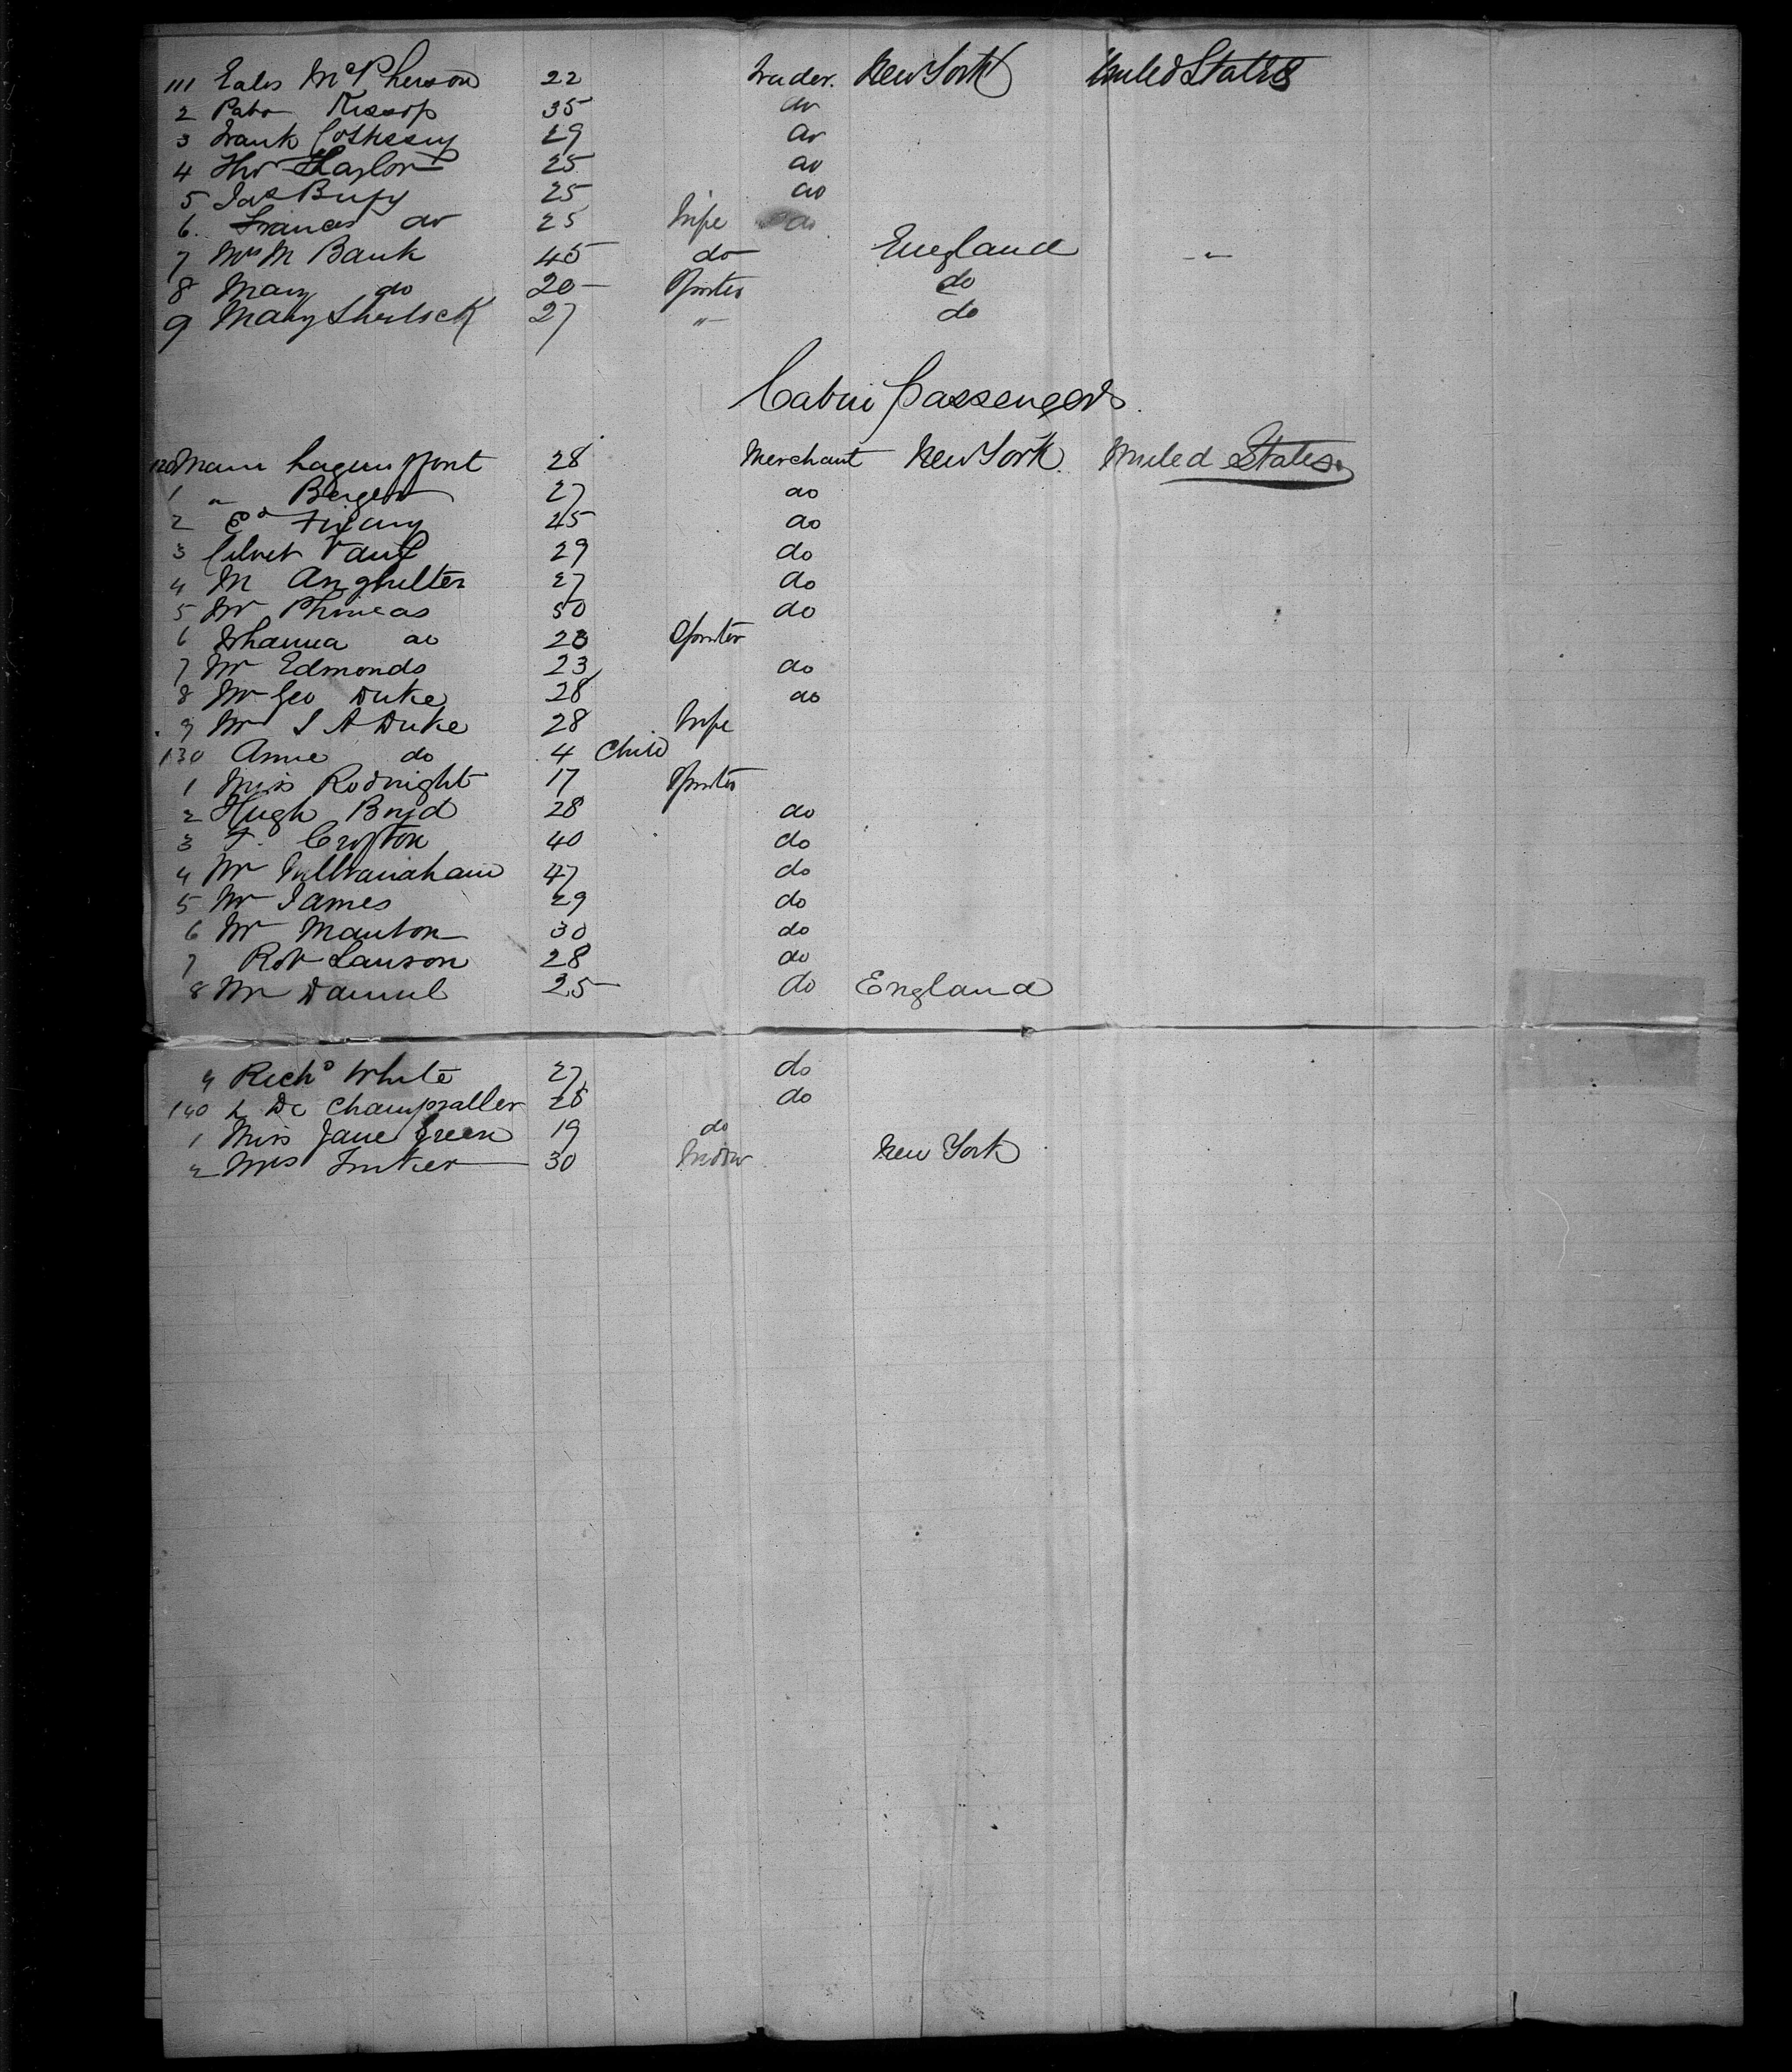 111 Eales McPherson 22 Trader. New York United States
2 Patr 35 do
3 Frank 29 do
4 Thos Taylor 25 do
5 Jas 25 do
6. Frances do 25 Wife do
7 Mrs M Bank 45 do England "
8 Mary do 20 Spinster do
9 Mary Sherlock 27 " do
Cabin Passengers.
120 28 Merchant New York. United States.
1 " 27 do
2 Ed 25 do
3 29 do
4 M 27 do
5 Mr Phineas 50 do
6 do 23 Spinster
7 Mr Edmonds 23 do
8 Mr Geo Duke 28 do
9 Mrs S A Duke 28 Wife
130 Anne do 4 Child
1 Miss Rodnight 17 Spinster
2 Hugh Boyd 28 do
3 F. Crofton 40 do
4 Mr 47 do
5 Mr James 29 do
6 Mr Manton 30 do
7 Robt Lawson 28 do
8 Mr Daniel 25 do England
9 Richd White 27 do
140 L De 28 do
1 Miss Jane Green 19 do
2 Mrs 30 Widow New York